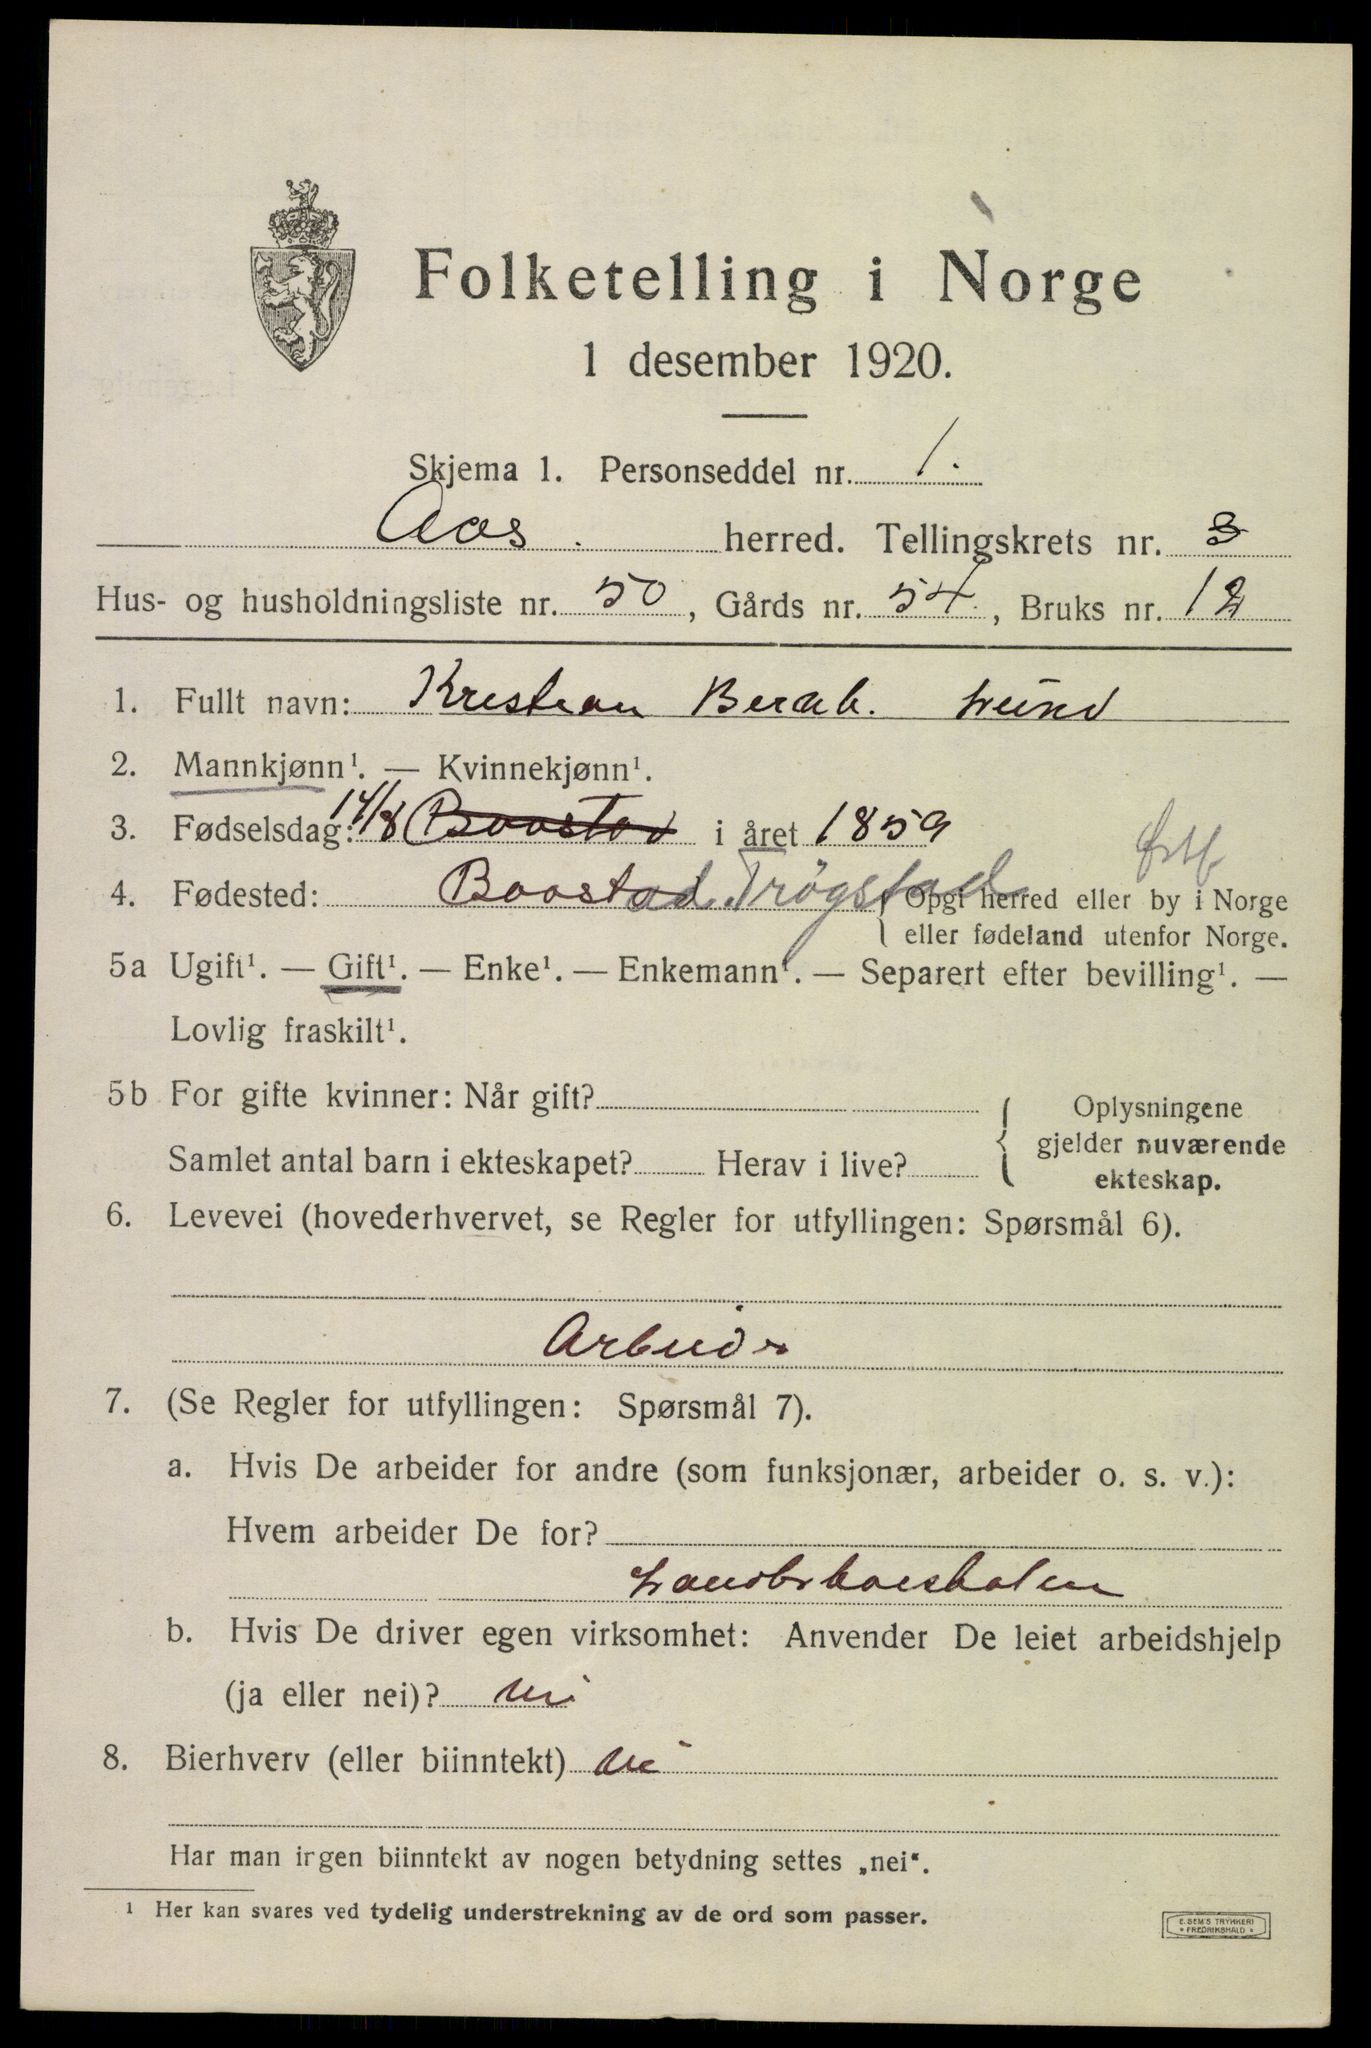 Folketelling i Norge
1 desember 1920.
Skjema 1. Personseddel nr. 1.
Aas. herred. Tellingskrets nr. 3
Hus- og husholdningsliste nr. 50, Gårds nr. 54, Bruks nr. 12
1. Fullt navn: Kristian Lund
2. Mannkjønn¹. — Kvinnekjønn¹.
3. Fødselsdag: 14/8 Baastad i året 1859
4. Fødested: Baastad Trøgstad Østf
{ Opgi herred eller by i Norge
eller fødeland utenfor Norge.
5a Ugift¹. — Gift¹. — Enke¹. — Enkemann¹. — Separert efter bevilling¹. —
Lovlig fraskilt¹.
5b For gifte kvinner: Når gift?
Samlet antal barn i ekteskapet? Herav i live?
{ Oplysningene
gjelder nuværende
ekteskap.
6. Levevei (hovederhvervet, se Regler for utfyllingen: Spørsmål 6).
Arbeider
7. (Se Regler for utfyllingen: Spørsmål 7).
a. Hvis De arbeider for andre (som funksjonær, arbeider o. s. v.):
Hvem arbeider De for?
Landbrukshøiskolen
b. Hvis De driver egen virksomhet: Anvender De leiet arbeidshjelp
(ja eller nei)? nei
8. Bierhverv (eller biinntekt) nei
Har man irgen biinntekt av nogen betydning settes „nei“.
¹ Her kan svares ved tydelig understrekning av de ord som passer.
E. SEM'S TRYKKERI
* FREDRIKSHALD *